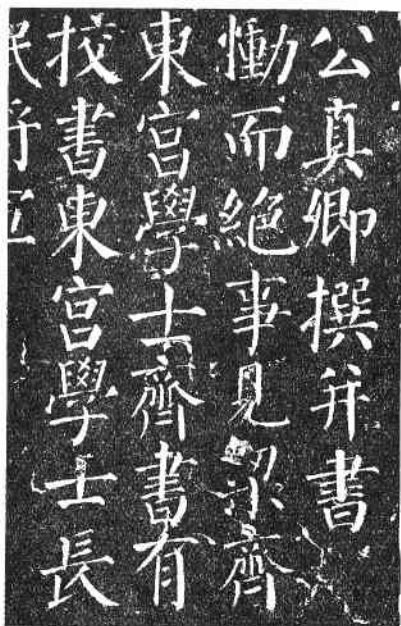 公真卿撰并書
慟而絶事見梁齊
東宮學士齊書有
挍書東宮學士長